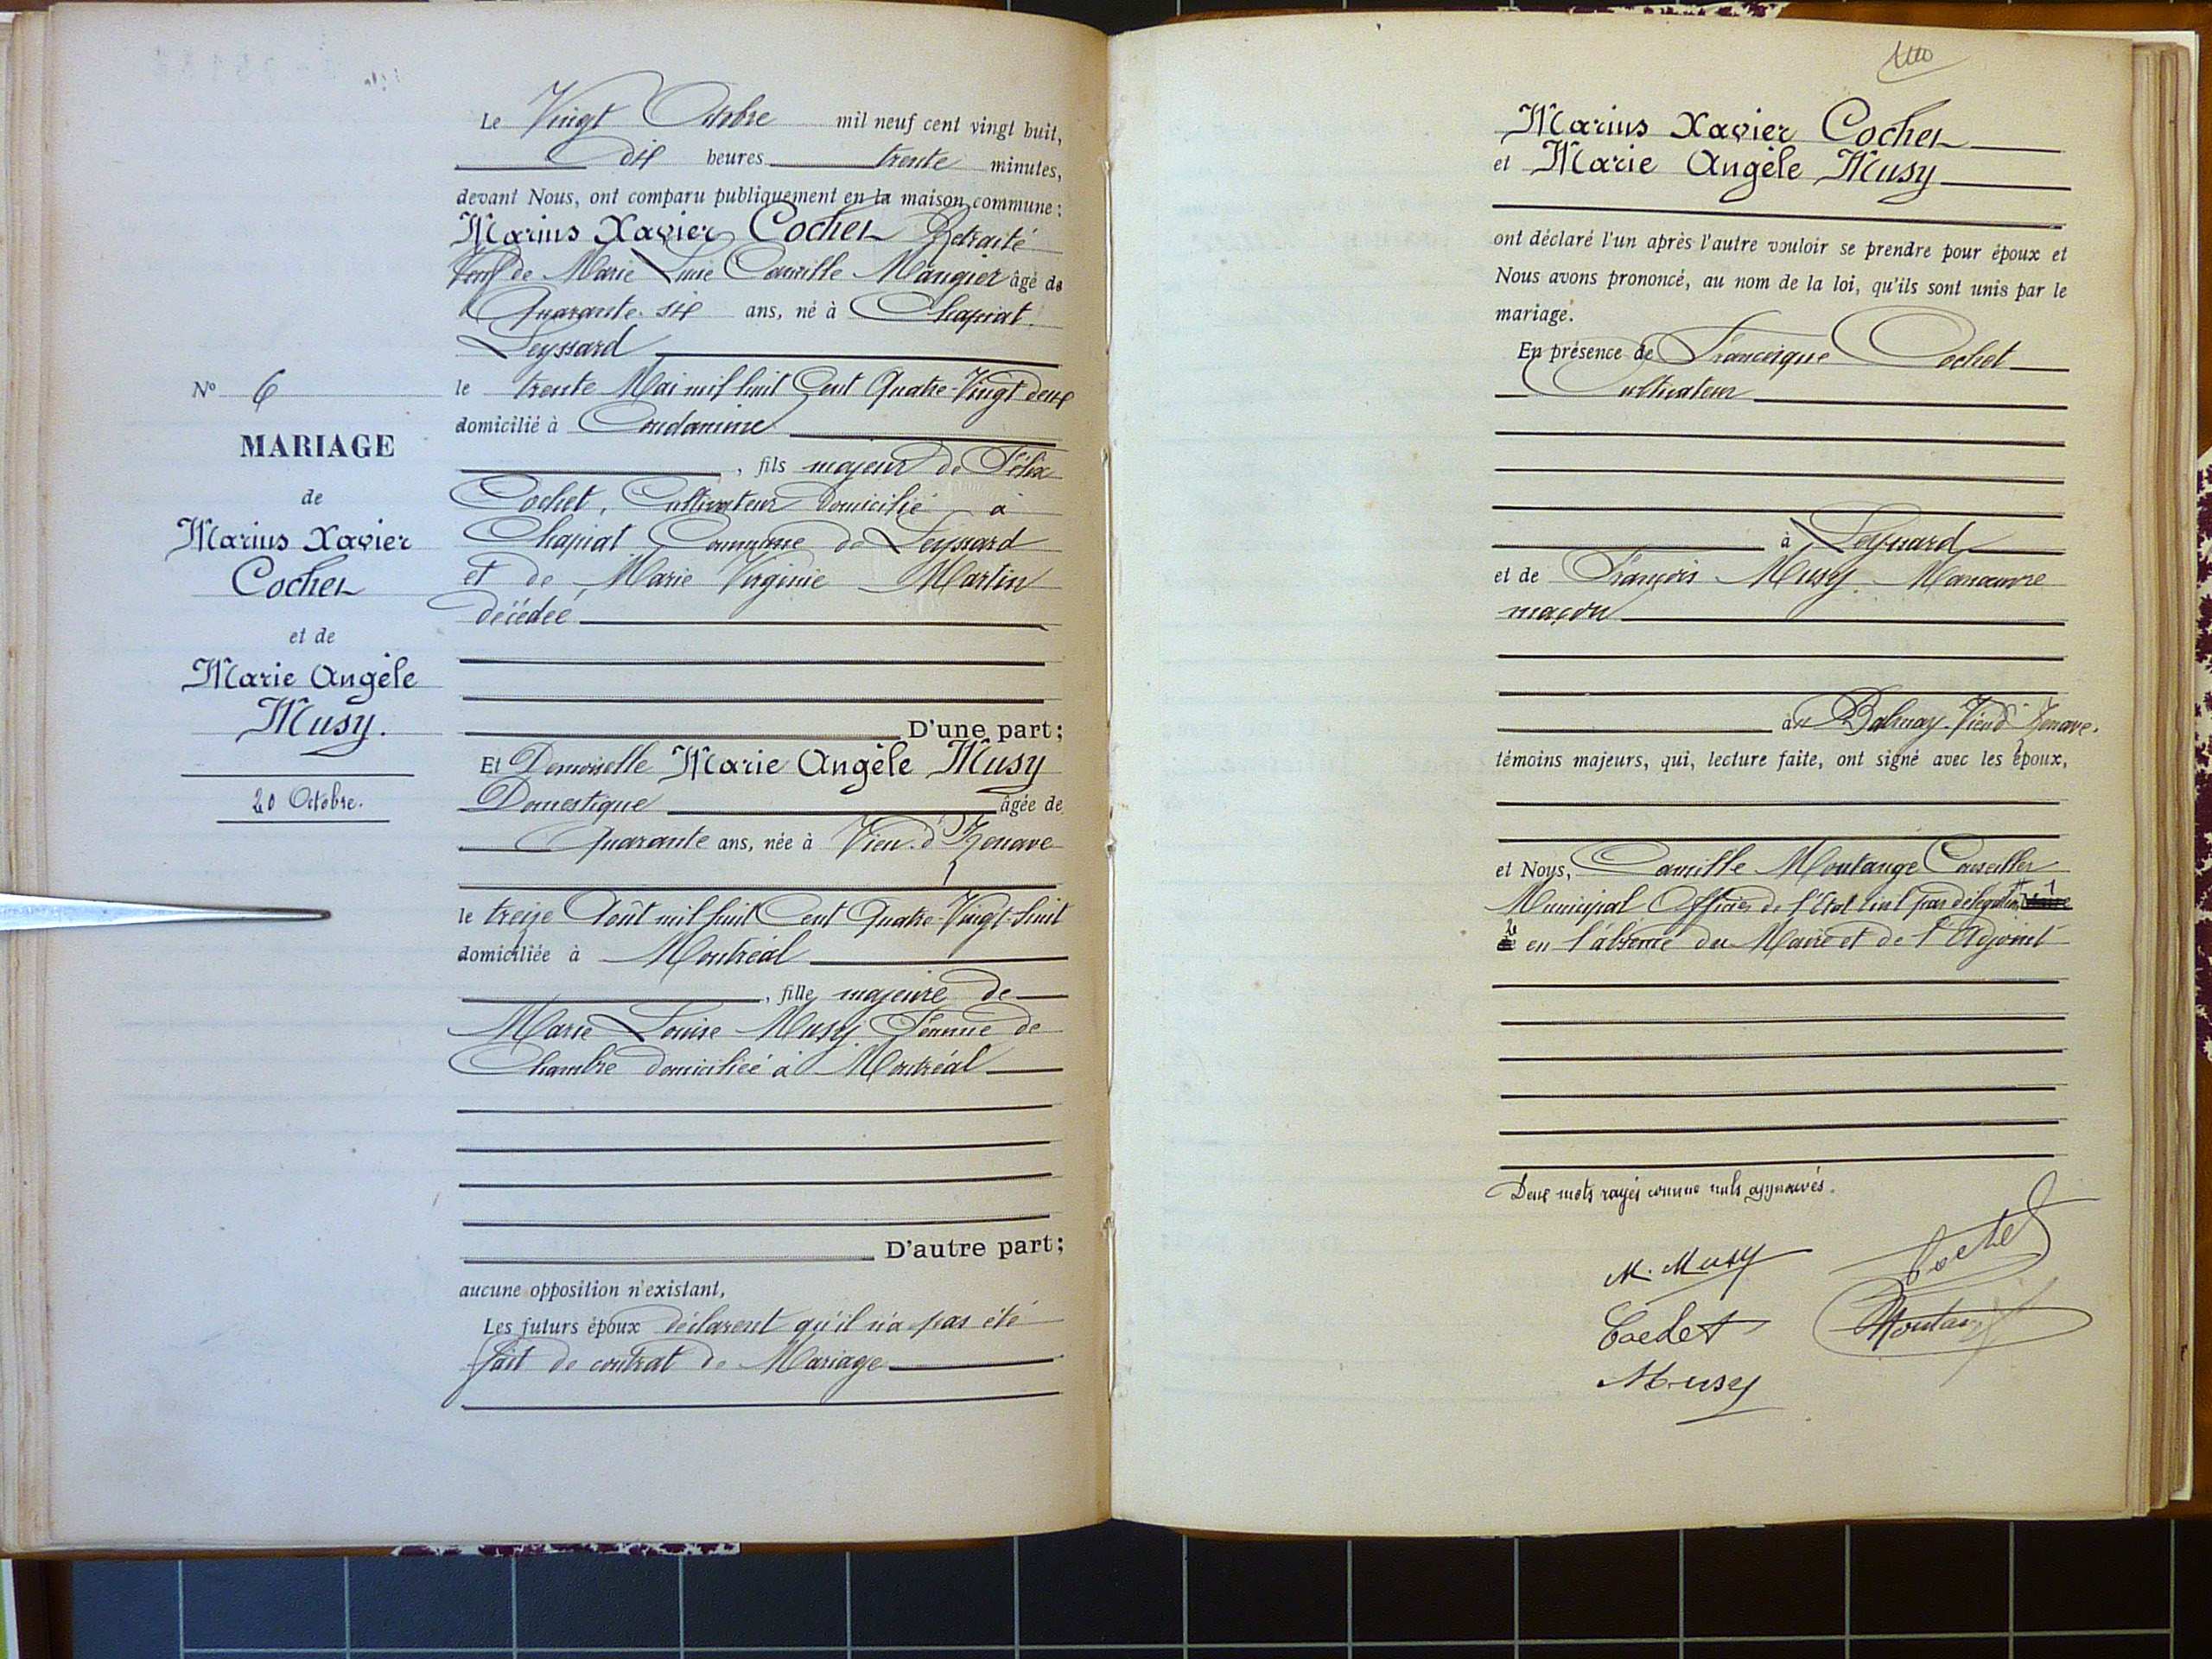 N° 6
MARIAGE
de
Marius Xavier
Cochet
et de
Marie Angèle
Musy.
20 Octobre.
Le Vingt Octobre mil neuf cent vingt huit,
dix heures trente minutes,
devant Nous, ont comparu publiquement en la maison commune :
Marius Xavier Cochet Retraité
Veuf de Marie Lucie Camille Mangier âgé de
Quarante-six ans, né à Chapiat.
Leyssard
le trente Mai mil huit Cent Quatre-Vingt deux
domicilié à Condamine
, fils majeur de Félix
Cochet, Cultivateur domicilié à
Chapiat Commune de Leyssard
et de Marie Virginie Martin
décédée
D'une part ;
Et Demoiselle Marie Angèle Musy
Domestique âgée de
Quarante ans, née à Vieu-d'Izenave
le treize Août mil huit Cent Quatre-Vingt-huit
domiciliée à Montréal
, fille majeure de
Marie Louise Musy Femme de
Chambre domiciliée à Montréal
D'autre part ;
aucune opposition n'existant,
Les futurs époux déclarent qu'il n'a pas été
fait de contrat de Mariage
Marius Xavier Cochet
et Marie Angèle Musy
ont déclaré l'un après l'autre vouloir se prendre pour époux et
Nous avons prononcé, au nom de la loi, qu'ils sont unis par le
mariage.
En présence de Francisque Cochet
Cultivateur
à Leyssard
et de François Musy. Manœuvre
maçon
à Balmay-Vieu d'Izenave.
témoins majeurs, qui, lecture faite, ont signé avec les époux,
et Nous, Camille Montange Conseiller
Municipal Officier de l'Etat Civil par délégation
en l'absence du Maire et de l'Adjoint
Deux mots rayés comme nuls approuvés.
M. Musy Cochet
Cochet Montange
Musy